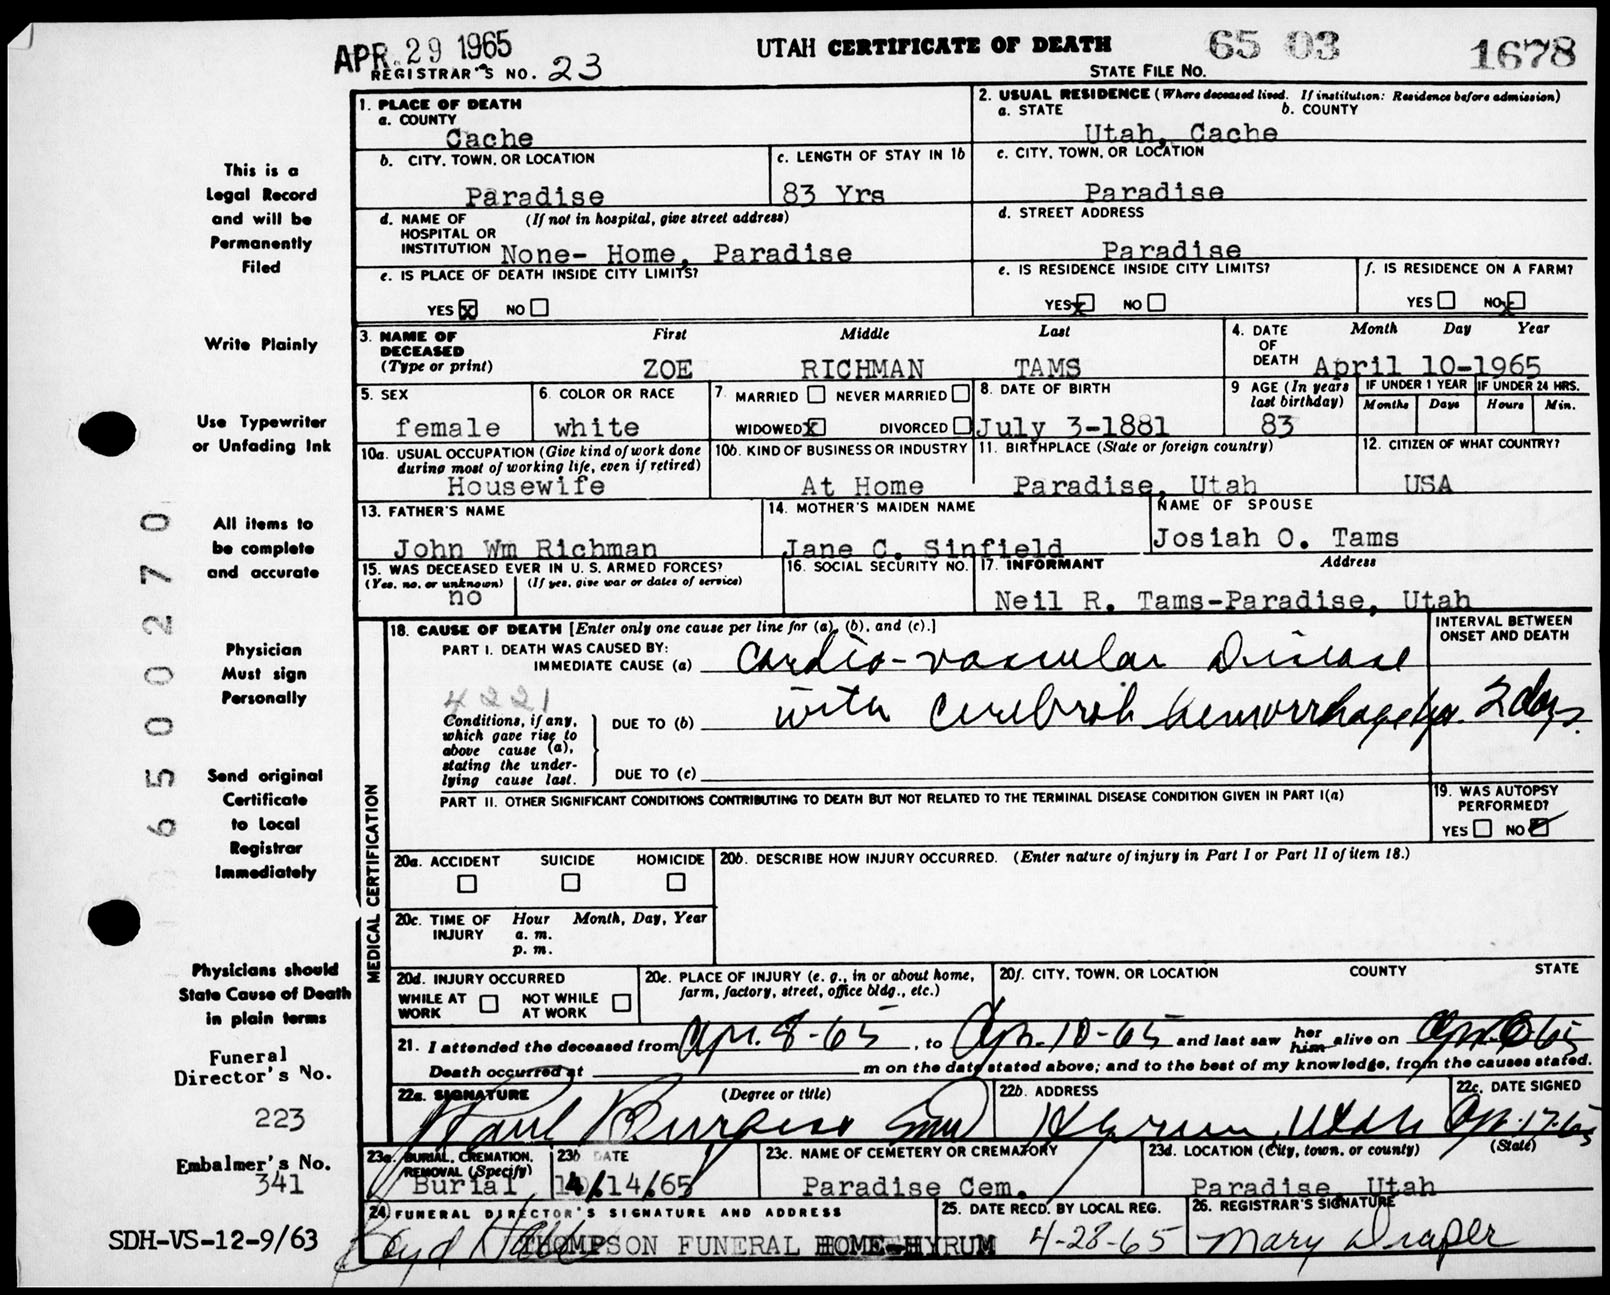 APR. 29 1965
UTAH CERTIFICATE OF DEATH
65 03
1678
REGISTRAR'S NO. 23
STATE FILE NO.
This is a
Legal Record
and will be
Permanently
Filed
Write Plainly
Use Typewriter
or Unfading Ink
All items to
be complete
and accurate
Physician
Must sign
Personally
Send original
Certificate
to Local
Registrar
Immediately
Physicians should
State Cause of Death
in plain terms
Funeral
Director's No.
223
Embalmer's No.
341
SDH-VS-12-9/63
6500270
1. PLACE OF DEATH
a. COUNTY
Cache
2. USUAL RESIDENCE (Where deceased lived. If institution: Residence before admission)
a. STATE b. COUNTY
Utah, Cache
b. CITY, TOWN, OR LOCATION
Paradise
c. LENGTH OF STAY IN 1b
83 Yrs
c. CITY, TOWN, OR LOCATION
Paradise
d. NAME OF (If not in hospital, give street address)
HOSPITAL OR
INSTITUTION None- Home, Paradise
d. STREET ADDRESS
Paradise
e. IS PLACE OF DEATH INSIDE CITY LIMITS?
YES X NO
e. IS RESIDENCE INSIDE CITY LIMITS?
YES x NO
f. IS RESIDENCE ON A FARM?
YES NO x
3. NAME OF First Middle Last
DECEASED
(Type or print) ZOE RICHMAN TAMS
4. DATE Month Day Year
OF
DEATH April 10-1965
5. SEX
female
6. COLOR OR RACE
white
7. MARRIED NEVER MARRIED
WIDOWED x DIVORCED
8. DATE OF BIRTH
July 3-1881
9 AGE (In years
last birthday)
83
IF UNDER 1 YEAR IF UNDER 24 HRS.
Months Days Hours Min.
10a. USUAL OCCUPATION (Give kind of work done
during most of working life, even if retired)
Housewife
10b. KIND OF BUSINESS OR INDUSTRY
At Home
11. BIRTHPLACE (State or foreign country)
Paradise, Utah
12. CITIZEN OF WHAT COUNTRY?
USA
13. FATHER'S NAME
John Wm Richman
14. MOTHER'S MAIDEN NAME
Jane C. Sinfield
NAME OF SPOUSE
Josiah O. Tams
15. WAS DECEASED EVER IN U. S. ARMED FORCES?
(Yes, no, or unknown) (If yes, give war or dates of service)
no
16. SOCIAL SECURITY NO.
17. INFORMANT Address
Neil R. Tams-Paradise, Utah
MEDICAL CERTIFICATION
18. CAUSE OF DEATH [Enter only one cause per line for (a), (b), and (c).]
INTERVAL BETWEEN
ONSET AND DEATH
PART I. DEATH WAS CAUSED BY:
IMMEDIATE CAUSE (a) Cardio-vascular Disease
4221
Conditions, if any,
which gave rise to
above cause (a),
stating the under-
lying cause last.
DUE TO (b) with Cerebral hemorrhage 2 days.
DUE TO (c)
PART II. OTHER SIGNIFICANT CONDITIONS CONTRIBUTING TO DEATH BUT NOT RELATED TO THE TERMINAL DISEASE CONDITION GIVEN IN PART I(a)
19. WAS AUTOPSY
PERFORMED?
YES NO
20a. ACCIDENT SUICIDE HOMICIDE
20b. DESCRIBE HOW INJURY OCCURRED. (Enter nature of injury in Part I or Part II of item 18.)
20c. TIME OF Hour Month, Day, Year
INJURY a. m.
p. m.
20d. INJURY OCCURRED
WHILE AT NOT WHILE
WORK AT WORK
20e. PLACE OF INJURY (e. g., in or about home,
farm, factory, street, office bldg., etc.)
20f. CITY, TOWN, OR LOCATION COUNTY STATE
21. I attended the deceased from Apr. 8-65, to Apr. 10-65 and last saw her him alive on Apr. 65
Death occurred at m on the date stated above; and to the best of my knowledge, from the causes stated.
22a. SIGNATURE (Degree or title)
Paul Burgess MD
22b. ADDRESS
Hyrum Utah
22c. DATE SIGNED
Apr. 17-65
23a. BURIAL, CREMATION,
REMOVAL (Specify)
Burial
23b DATE
4.14.65
23c. NAME OF CEMETERY OR CREMATORY
Paradise Cem.
23d. LOCATION (City, town, or county) (State)
Paradise, Utah
24. FUNERAL DIRECTOR'S SIGNATURE AND ADDRESS
Boyd THOMPSON FUNERAL HOME-HYRUM
25. DATE RECD. BY LOCAL REG.
4-28-65
26. REGISTRAR'S SIGNATURE
Mary Draper